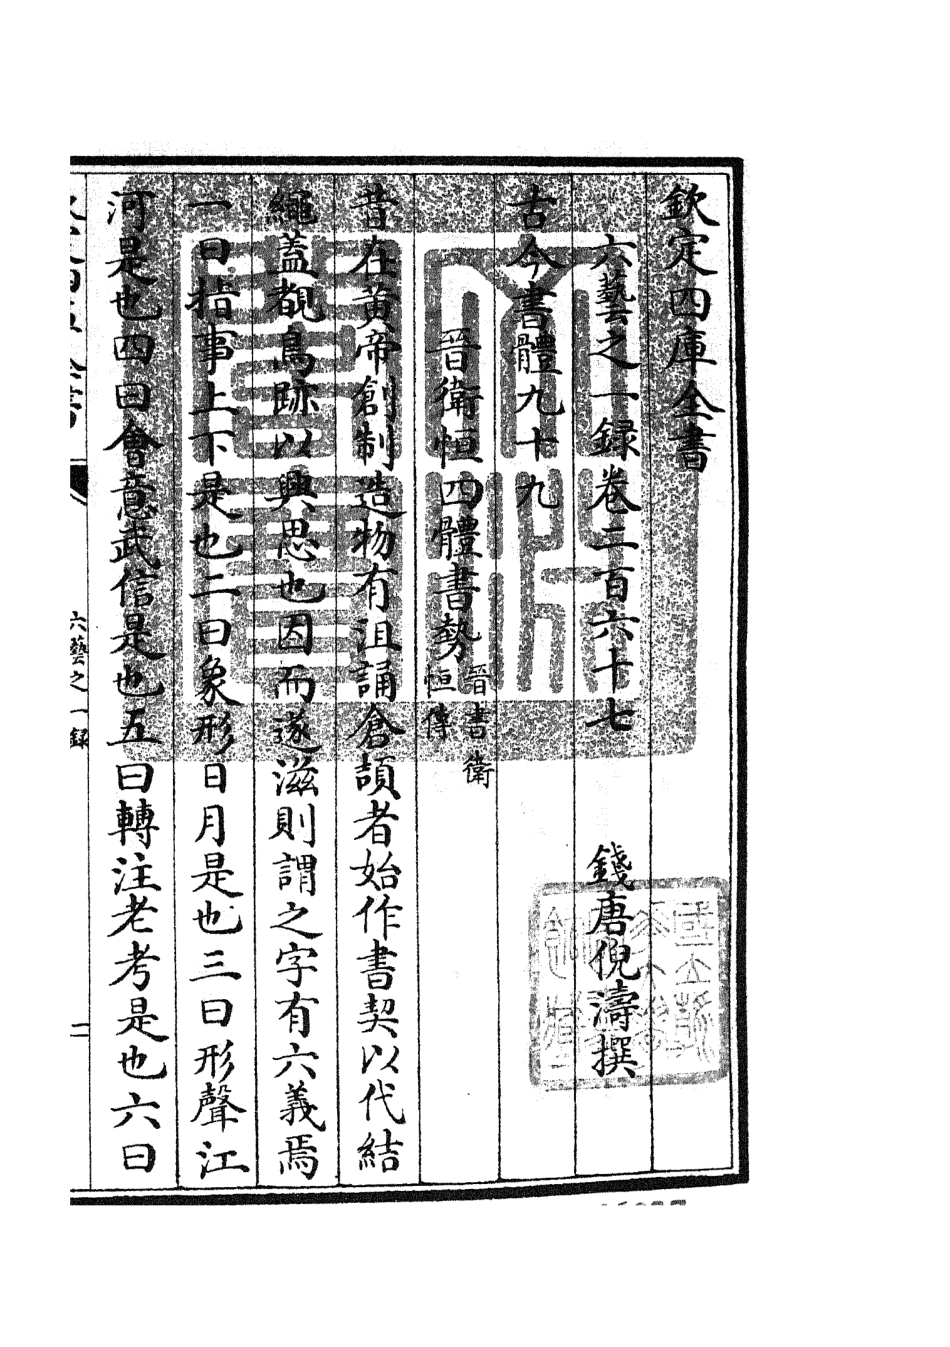 欽定四庫全書
六藝之一録卷二百六十七 錢唐倪濤撰
古今書體九十九
晉衛恒四體書勢 晉書衛恒傳
昔在黄帝創制造物有沮誦倉頡者始作書契以代結
繩蓋覩鳥跡以興思也因而遂滋則謂之字有六義焉
一曰指事上下是也二曰象形日月是也三曰形聲江
河是也四曰會意武信是也五曰轉注老考是也六曰
六藝之一録